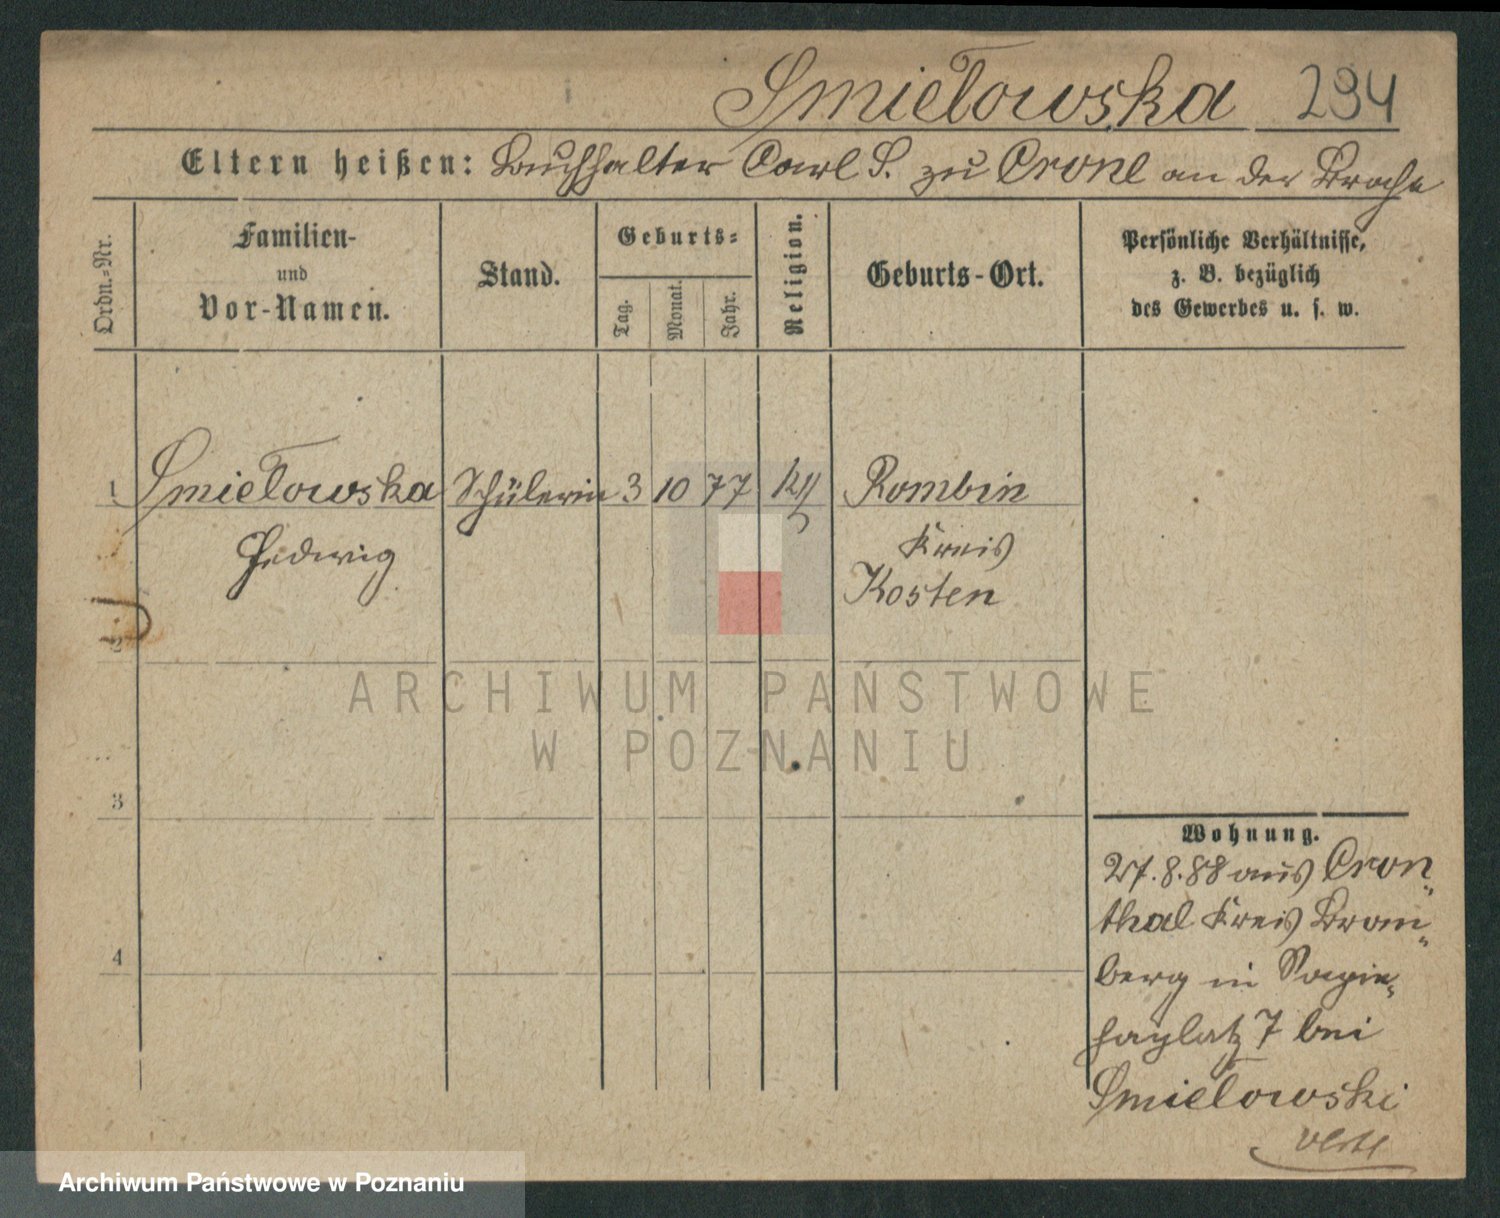 Smiełowska 294
Eltern heißen: Buchhalter Carl S. zu Crone an der Brahe
Ordn.-Nr.
Familien-
und
Vor-Namen.
Stand.
Geburts-
Tag.
Monat.
Jahr.
Religion.
Geburts-Ort.
Persönliche Verhältnisse,
z. B. bezüglich
des Gewerbes u. s. w.
1 Smiełowska Schülerin 3 10 77 Rombin
Hedwig Kreis
Kosten
2
3
4
Wohnung.
27.8.88 aus Cron„
thal Kreis Brom„
berg in Sapie„
haplatz 7 bei
Smiełowski
ARCHIWUM PAŃSTWOWE
W POZNANIU
Archiwum Państwowe w Poznaniu